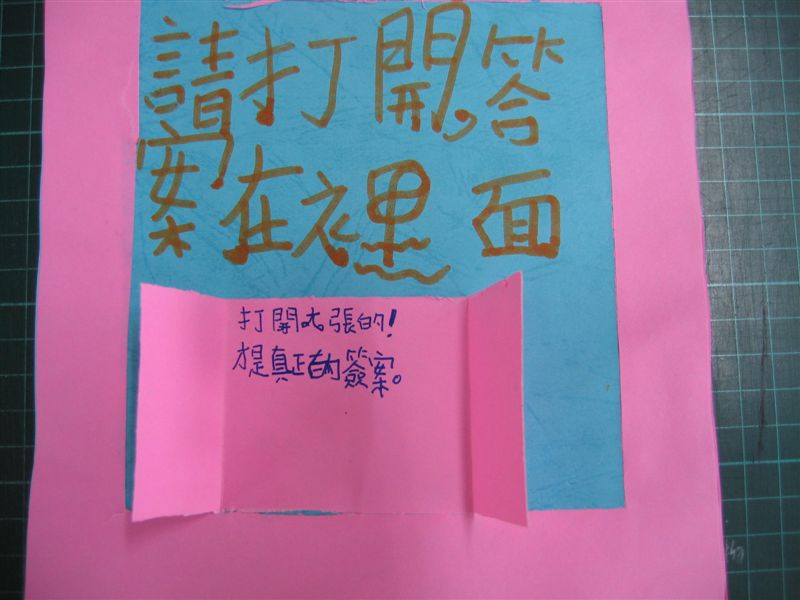 請打開,答
案在裡面
打開大張的!
才是真正的簽案。